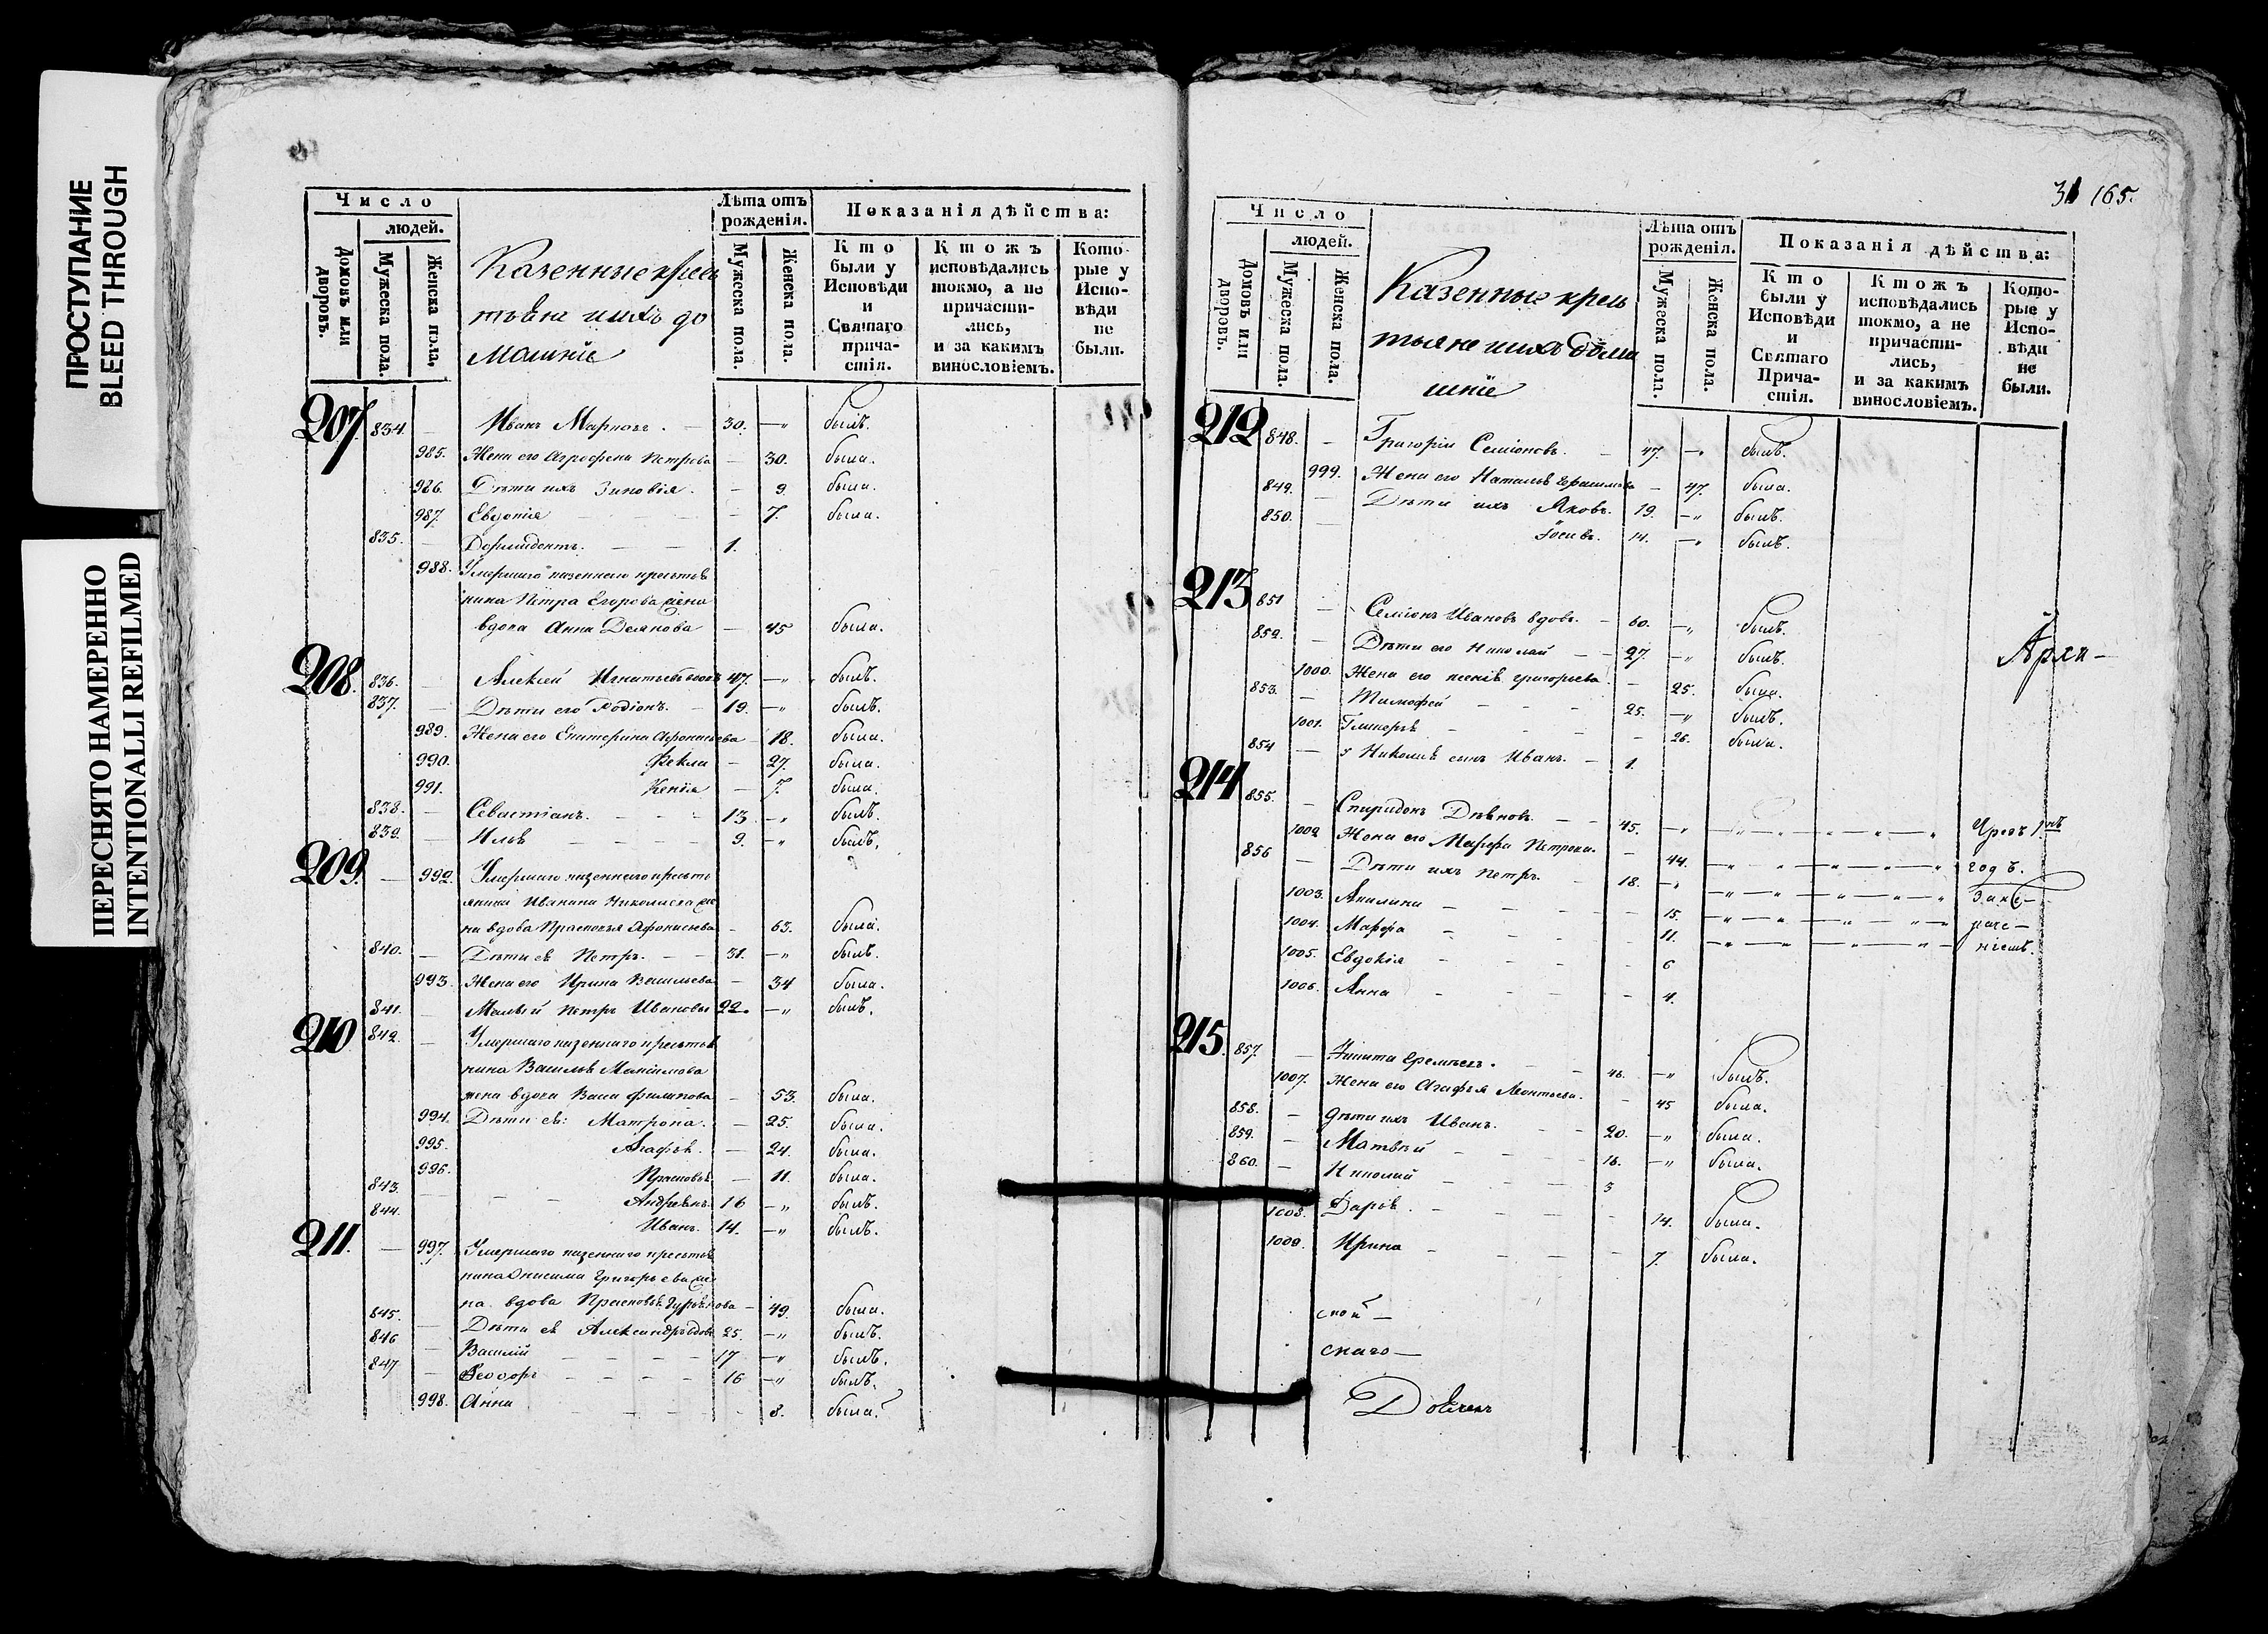 ПРОСТУПАНИЕ
BLEED THROUGH
ПЕРЕСНЯТО НАМЕРЕННО
INTENTIONALLI REFILMED
Число
людей.
Домовъ или дворовъ.
Мужеска пола.
Женска пола.
Казенные крес
тьяне и ихъ до
машніе
Лѣта отъ рожденія.
Мужеска пола.
Женска пола.
Показанія дѣйства:
Кто были у Исповѣди и Святаго причастія.
Ктожъ исповѣдались токмо, а не причастились, и за какимъ винословіемъ.
Которые у Исповѣди не были.
207 834. — Иванъ Марковъ. — 30. —„ былъ.
985. Жена его Агрофена Петрова — 30. была.
986. Дѣти ихъ Зиновія. — 9. была.
987. Евдокія — 7. была.
835. — 1.
988. Умершаго казеннаго крестья
нина Петра Егорова жена
вдова Анна — 45 была.
208. 836. — Алексей Игнатьевъ вдовъ 47. —„ былъ.
837. — Дѣти его Родіонъ. — 19. —„ былъ.
989. Жена его Екатерина Афонасьева — 18. была.
990. Фекла — 27. была.
991. — 7. была.
838. — Севастіанъ. — 13 —„ былъ.
839. — Илья — 9. —„ былъ.
209. — 992. Умершаго казеннаго кресть
янина Николаева же
на вдова Прасковья Афонасьева — 63. была.
840. — Дѣти ея Петръ. — 31. —„ былъ.
993. Жена его Ирина Васильева — 34 была.
841. — Малый Петръ Ивановъ 22. —„ былъ.
210 842. — Умершаго казеннаго крестья
нина Василья Максимова
жена вдова Васа Филипова — 53. была.
994. Дѣти ея: Матрона. — 25. была.
995. Агафья. — 24. была.
996. Прасковья — 11. была.
843. — Андреянъ 16 —„ былъ.
844. Иванъ. 14. —„ былъ.
211. — 997. Умершаго казеннаго крестья
нина Анисима Григорьева же
на вдова Прасковья — 49. была.
845. — Дѣти ея Александръ вдовъ 25. —„ былъ.
846 — Василій — 17 —„ былъ.
847 — Феодоръ — 16 —„ былъ.
998. Анна — 8. была.
31 165.
Число
людей.
Домовъ или дворовъ.
Мужеска пола.
Женска пола.
Казенные крес
тьяне и ихъ дома
шніе
Лѣта отъ рожденія.
Мужеска пола.
Женска пола.
Показанія дѣйства:
Кто были у Исповѣди и Святаго Причастія.
Ктожъ исповѣдались токмо, а не причастились, и за какимъ винословіемъ.
Которые у Исповѣди не были.
212 848. — Григорій Семіоновъ. — 47. —„ былъ.
999. Жена его Наталья Герасимова — 47. была.
849. — Дѣти ихъ Яковъ. 19. —„ былъ.
850. — Іосивъ. 14. —„ былъ.
213 851 — Семіонъ Ивановъ вдовъ. — 60. —„ былъ.
852. — Дѣти его Николай — 27. —„ былъ.
Архи—
1000. Жена его Ксенія Григорьева — 25. была.
853. — Тимофей — 25. —„ былъ.
1001. Гликерья — 26. была.
854 — у Николая сынъ Иванъ. — 1.
214 855. — Спиридонъ — 45. —„ Чрезъ 1нъ
1002 Жена его Марфа Петрова. — 44. годъ.
856 — Дѣти ихъ Петръ. — 18. —„
1003. Акилина — 15.
1004. Марфа — 11. ніемъ.
1005. Евдокія — 6
1006. Анна — 4.
215. 857. — Никита Еремѣевъ. — 46. —„ былъ.
1007. Жена его Агафья Леонтьева. — 45 была.
858. — Дѣти ихъ Иванъ. — 20. —„ была.
859. — Матвѣй — 16. —„ была.
860. — Николай — 3
1008. Дарья. — 14. была.
1009. Ирина — 7. была.
ской —
скаго —